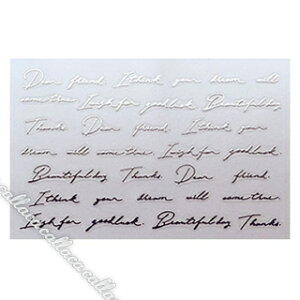 Dear friend. I think your dream will
come true. Laugh for goodluck. Beautiful day
Thanks. Dear friend. I think your
dream will come true. Laugh for goodluck.
Beautiful day Thanks. Dear friend.
I think your dream will come true.
Laugh for goodluck. Beautiful day Thanks.